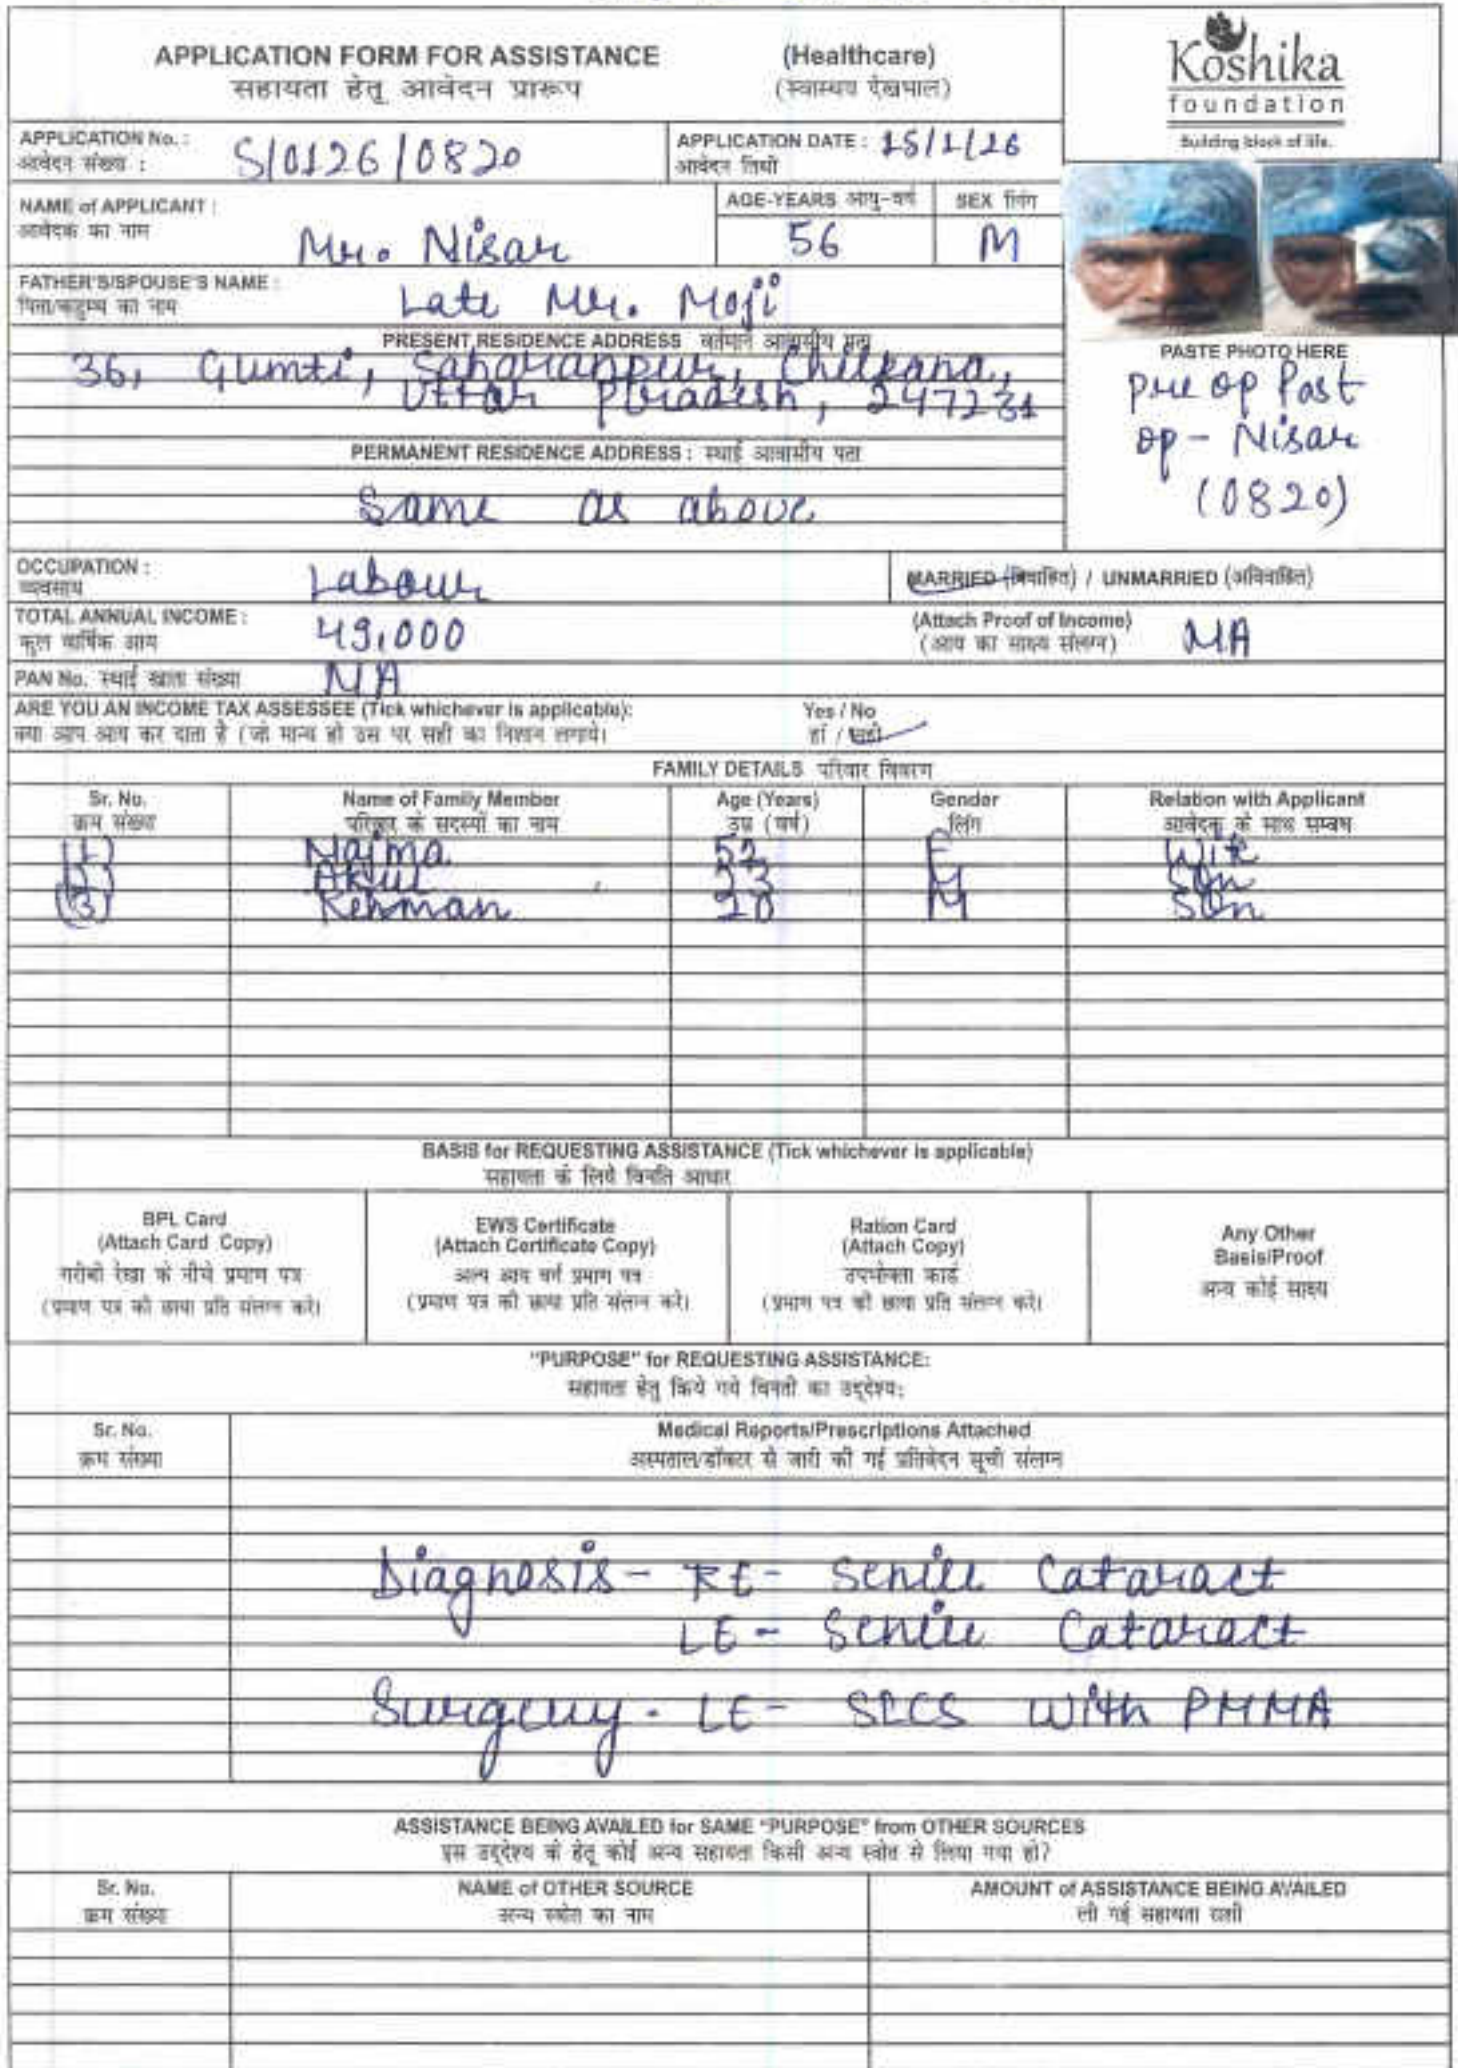 APPLICATION FORM FOR ASSISTANCE (Healthcare)
सहायता हेतू आवेदन प्रारूप (स्वास्थय देखभाल)
Koshika
foundation
Building block of life.
APPLICATION No. : S/0126/0820
आवेदन संख्या :
APPLICATION DATE : 15/1/26
आवेदन तिथी
NAME of APPLICANT : Mr. Nisar
आवेदक का नाम
AGE-YEARS आयु-वर्ष 56
SEX लिंग M
FATHER'S/SPOUSE'S NAME : Late Mr. Moji
पिता/कटुम्ब का नाम
PRESENT RESIDENCE ADDRESS वर्तमान आवासीय पता
36, Gumti, Saharanpur, Chilkana,
Uttar Pradesh, 247231
PERMANENT RESIDENCE ADDRESS : स्थाई आवासीय पता
Same as above
PASTE PHOTO HERE
Pre op Post
op - Nisar
(0820)
OCCUPATION : Labour
व्यवसाय
MARRIED (विवाहित) / UNMARRIED (अविवाहित)
TOTAL ANNUAL INCOME : 49,000
कुल वार्षिक आय
(Attach Proof of Income) NA
(आय का साक्ष्य संलग्न)
PAN No. स्थाई खाता संख्या NA
ARE YOU AN INCOME TAX ASSESSEE (Tick whichever is applicable): Yes / No
क्या आप आय कर दाता है (जो मान्य हो उस पर सही का निशान लगाये। हां / नहीं
FAMILY DETAILS परिवार विवरण
Sr. No. Name of Family Member Age (Years) Gender Relation with Applicant
क्रम संख्या परिवार के सदस्यों का नाम उम्र (वर्ष) लिंग आवेदक के साथ सम्बन्ध
(1) Najma 52 F Wife
23 M Son
(3) Rehman 20 M Son
BASIS for REQUESTING ASSISTANCE (Tick whichever is applicable)
सहायता के लिये विनति आधार
BPL Card
(Attach Card Copy)
गरीबी रेखा के नीचे प्रमाण पत्र
(प्रमाण पत्र की छाया प्रति संलग्न करे)
EWS Certificate
(Attach Certificate Copy)
अल्प आय वर्ग प्रमाण पत्र
(प्रमाण पत्र की छाया प्रति संलग्न करे)
Ration Card
(Attach Copy)
उपभोक्ता कार्ड
(प्रमाण पत्र की छाया प्रति संलग्न करे)
Any Other
Basis/Proof
अन्य कोई साक्ष्य
"PURPOSE" for REQUESTING ASSISTANCE:
सहायता हेतु किये गये विनती का उद्देश्य:
Sr. No. Medical Reports/Prescriptions Attached
क्रम संख्या अस्पताल/डॉक्टर से जारी की गई प्रतिवेदन सूची संलग्न
Diagnosis - RE - Senile Cataract
LE - Senile Cataract
Surgery - LE - SICS with PMMA
ASSISTANCE BEING AVAILED for SAME "PURPOSE" from OTHER SOURCES
इस उद्देश्य के हेतू कोई अन्य सहायता किसी अन्य स्त्रोत से लिया गया हो?
Sr. No. NAME of OTHER SOURCE AMOUNT of ASSISTANCE BEING AVAILED
क्रम संख्या अन्य स्त्रोत का नाम ली गई सहायता राशी